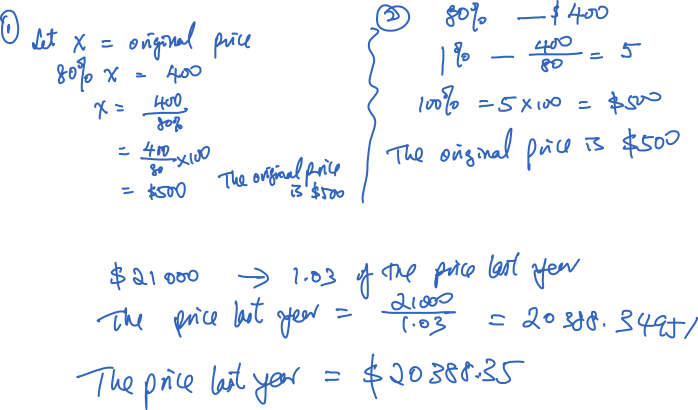 ① Let x = original price
80% x = 400
x = 400/80%
= 400/80 x100
= $500
The original price
is $500
② 80% — $400
1% — 400/80 = 5
100% = 5 x 100 = $500
The original price is $500
$21000 → 1.03 of the price last year
The price last year = 21000/1.03 = 20388.34951
The price last year = $20388.35